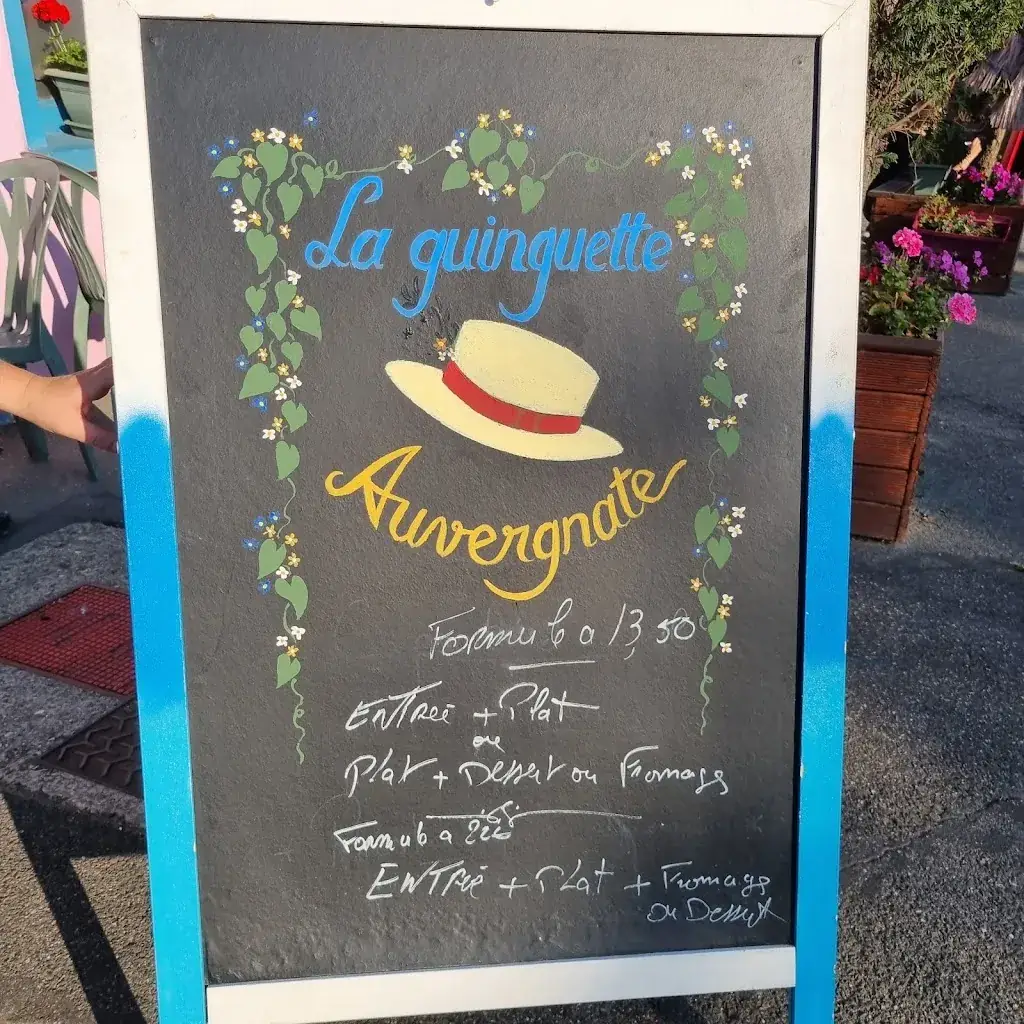 La guinguette
Auvergnate
Formule a 13,50
Entrée + Plat
ou
Plat + Dessert ou Fromage
Formule a 22€
Entrée + Plat + Fromage
ou Dessert